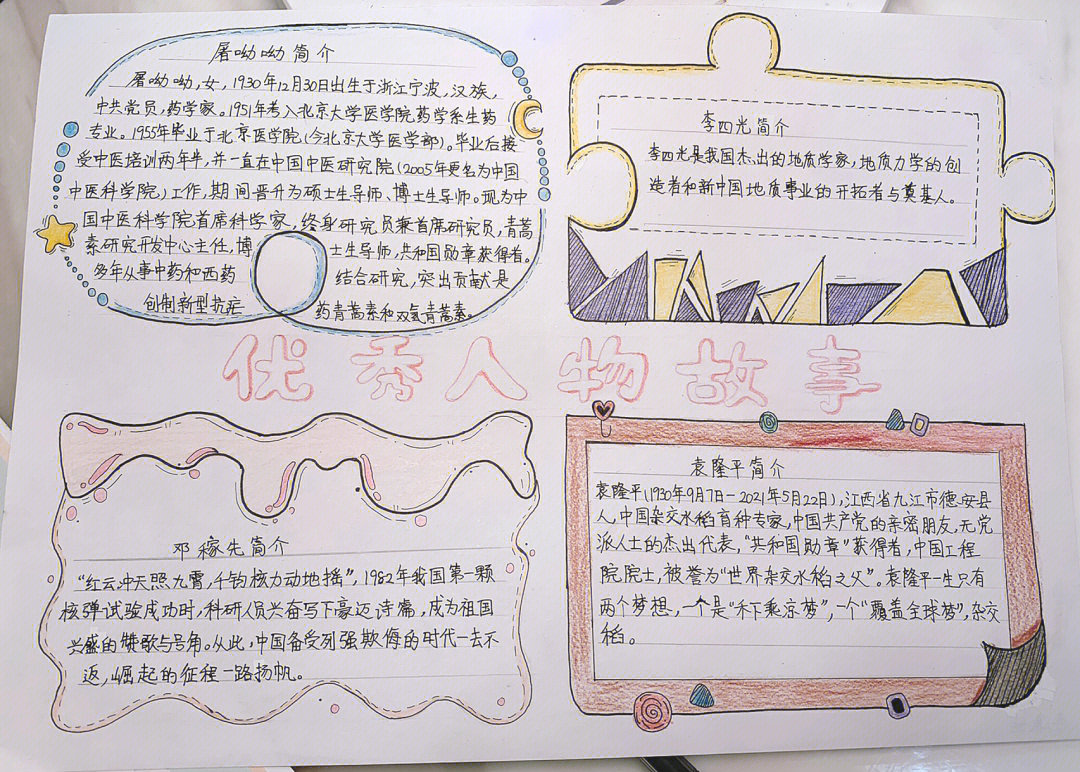 屠呦呦简介
屠呦呦,女,1930年12月30日出生于浙江宁波,汉族,
中共党员,药学家。1951年考入北京大学医学院药学系生药
专业。1955年毕业于北京医学院(今北京大学医学部)。毕业后接
受中医培训两年半,并一直在中国中医研究院(2005年更名为中国
中医科学院)工作,期间晋升为硕士生导师、博士生导师。现为中
国中医科学院首席科学家,终身研究员兼首席研究员,青蒿
素研究开发中心主任,博士生导师,共和国勋章获得者。
多年从事中药和西药结合研究,突出贡献是
创制新型抗疟药青蒿素和双氢青蒿素。
李四光简介
李四光是我国杰出的地质学家,地质力学的创
造者和新中国地质事业的开拓者与奠基人。
优秀人物故事
邓稼先简介
“红云冲天照九霄,千钧核力动地摇”,1982年我国第一颗
核弹试验成功时,科研人员兴奋写下豪迈诗篇,成为祖国
兴盛的赞歌与号角。从此,中国备受列强欺侮的时代一去不
返,崛起的征程一路扬帆。
袁隆平简介
袁隆平(1930年9月7日-2021年5月22日),江西省九江市德安县
人,中国杂交水稻育种专家,中国共产党的亲密朋友,无党
派人士的杰出代表,“共和国勋章”获得者,中国工程
院院士,被誉为“世界杂交水稻之父”。袁隆平一生只有
两个梦想,一个是“禾下乘凉梦”,一个“覆盖全球梦”,杂交
稻。